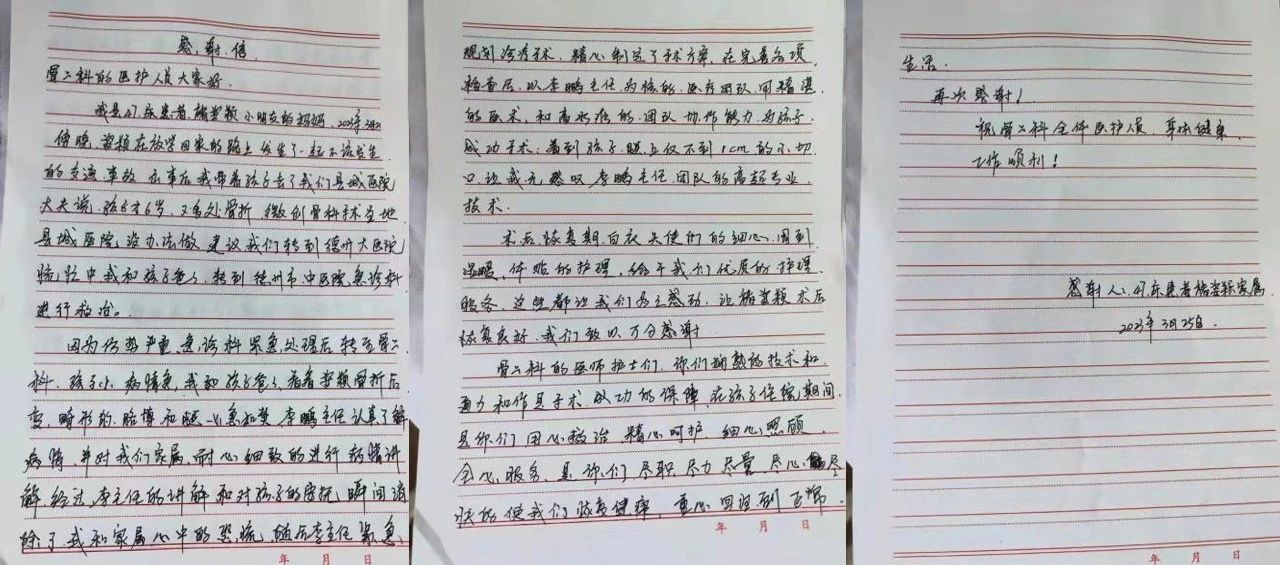 感谢信
骨二科的医护人员大家好
我是41床患者 小朋友的妈妈,2023年3月
傍晚, 在放学回来的路上发生了一起不该发生
的交通事故 出事后我带着孩子去了我们县城医院
大夫说,孩子才6岁,又多处骨折,微创骨科手术当地
县城医院没办法做,建议我们转到德州大医院
慌忙中我和孩子爸爸,转到德州市中医院急诊科
进行救治。
因为伤势严重,急诊科紧急处理后转至骨二
科,孩子小,病情急,我和孩子爸爸看着 骨折后
弯,畸形的胳膊和腿 心急如焚 李鹏主任认真了解
病情,并对我们家属,耐心细致的进行病情讲
解 经过李主任的讲解和对孩子的 瞬间消
除了我和家属心中的恐慌 随后李主任紧急,
规划诊疗术,精心制定了手术方案,在完善各项
检查后,以李鹏主任为核心的医疗团队,用精湛
的医术,和高水准的团队协作能力,为孩子
成功手术,看到孩子腿上仅不到1cm的小切
口让我无 感叹,李鹏主任团队的高超专业
技术.
术后恢复期白衣天使们的细心,周到
温暖,体贴的护理,给予我们优质的护理
服务,这些都让我们为之感动,让 术后
恢复良好,我们致以万分感谢
骨二科的医师护士们,你们娴熟的技术和
通力和作是手术成功的保障,在孩子住院期间
是你们用心救治 精心呵护,细心照顾,
全心服务,是你们尽职尽力尽责,尽心 尽
的使我们恢复健康, 心回归到正常
年 月 日
年 月 日
生活.
再次感谢!
祝骨二科全体医护人员,身体健康
工作顺利!
感谢人:41床患者 家属
2023年3月25日.
年 月 日